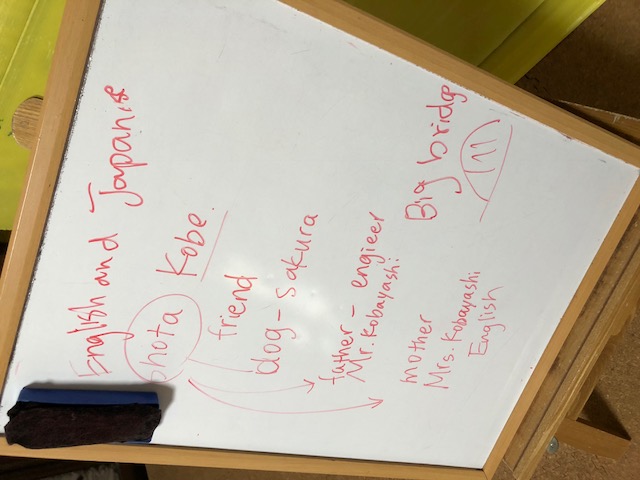 English and Japanise
Shota Kobe.
friend
dog - Sakura
father - engieer
Mr. Kobayashi
mother
Mrs. Kobayashi
English
Big bridge